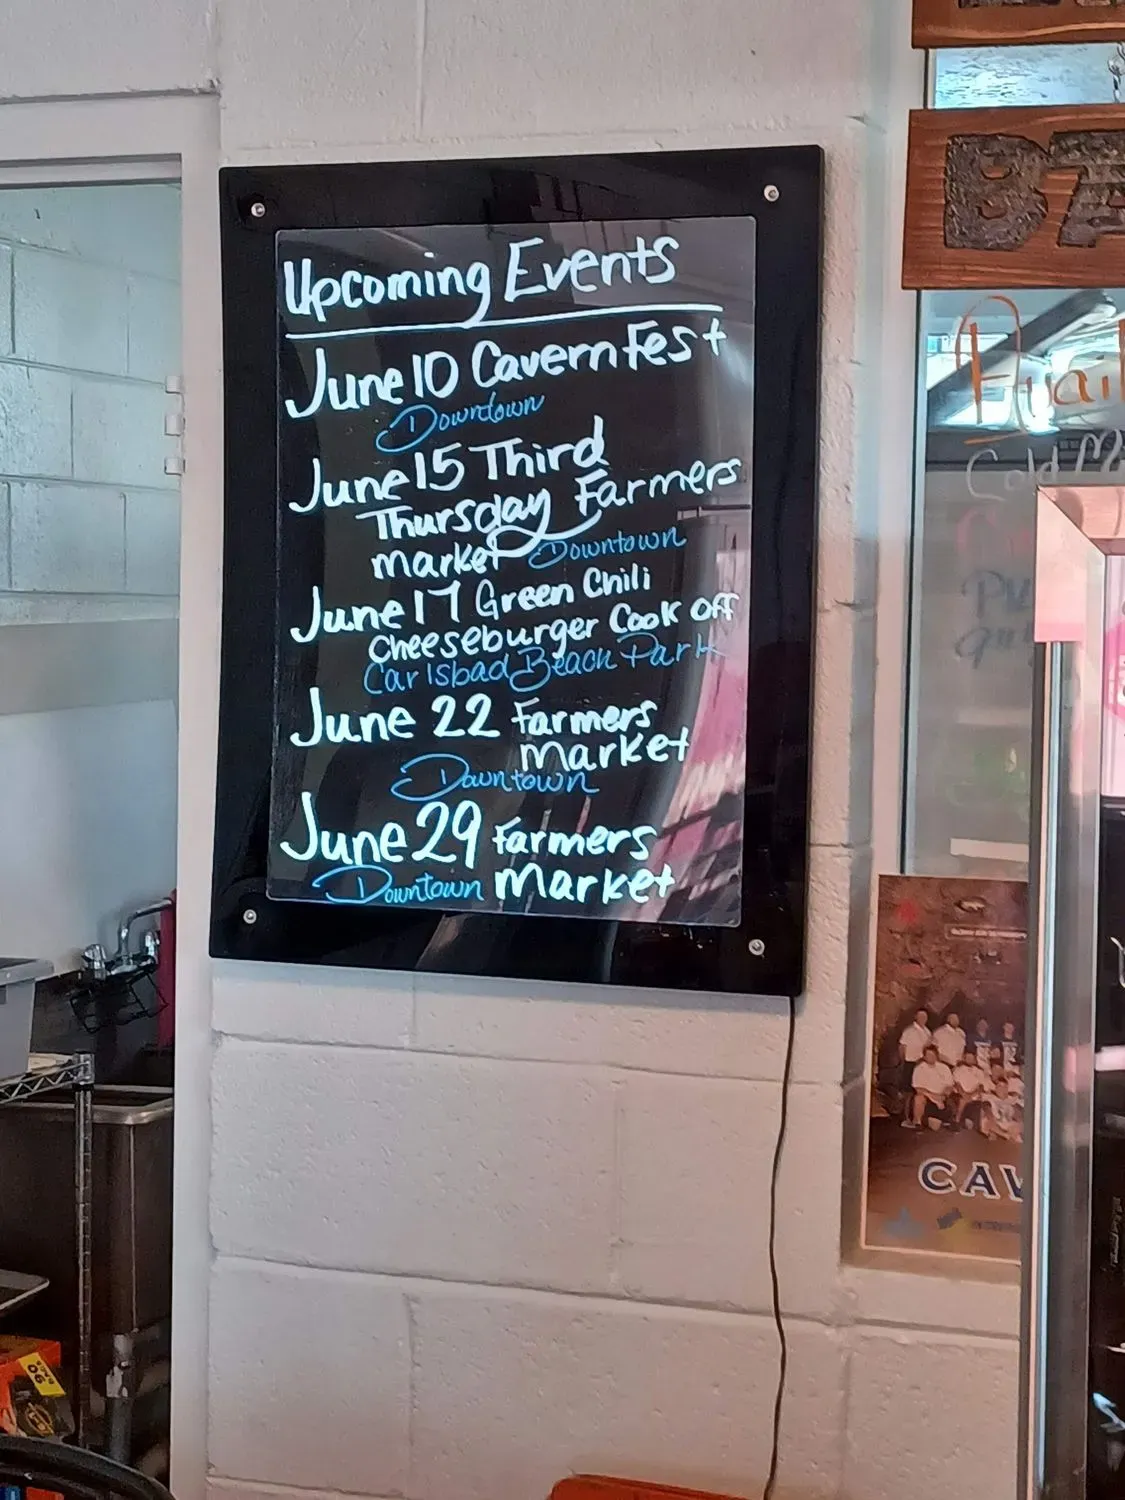 Upcoming Events
June 10 CavernFest
Downtown
June 15 Third
Thursday Farmers
market Downtown
June 17 Green Chili
Cheeseburger Cook off
Carlsbad Beach Park
June 22 Farmers
Market
Downtown
June 29 Farmers
Downtown Market
Cold
CAV